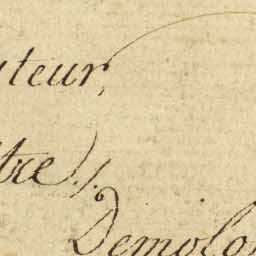 uteur,
tre).
Demolo